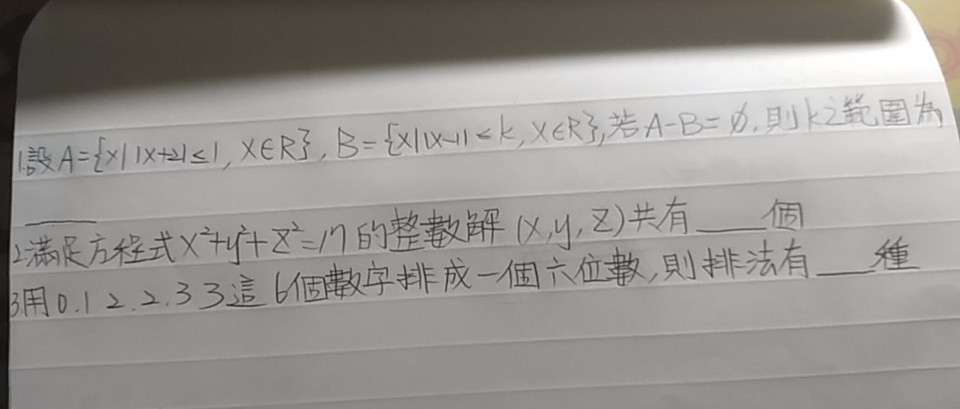 1.設A={x||x+2|≤1, x∈R}, B={x||x-1|≤k, x∈R},若A-B=∅,則k之範圍為
____
2滿足方程式x²+y²+z²=17的整數解(x,y,z)共有____個
3用0.1 2.2.3 3這6個數字排成一個六位數,則排法有___種